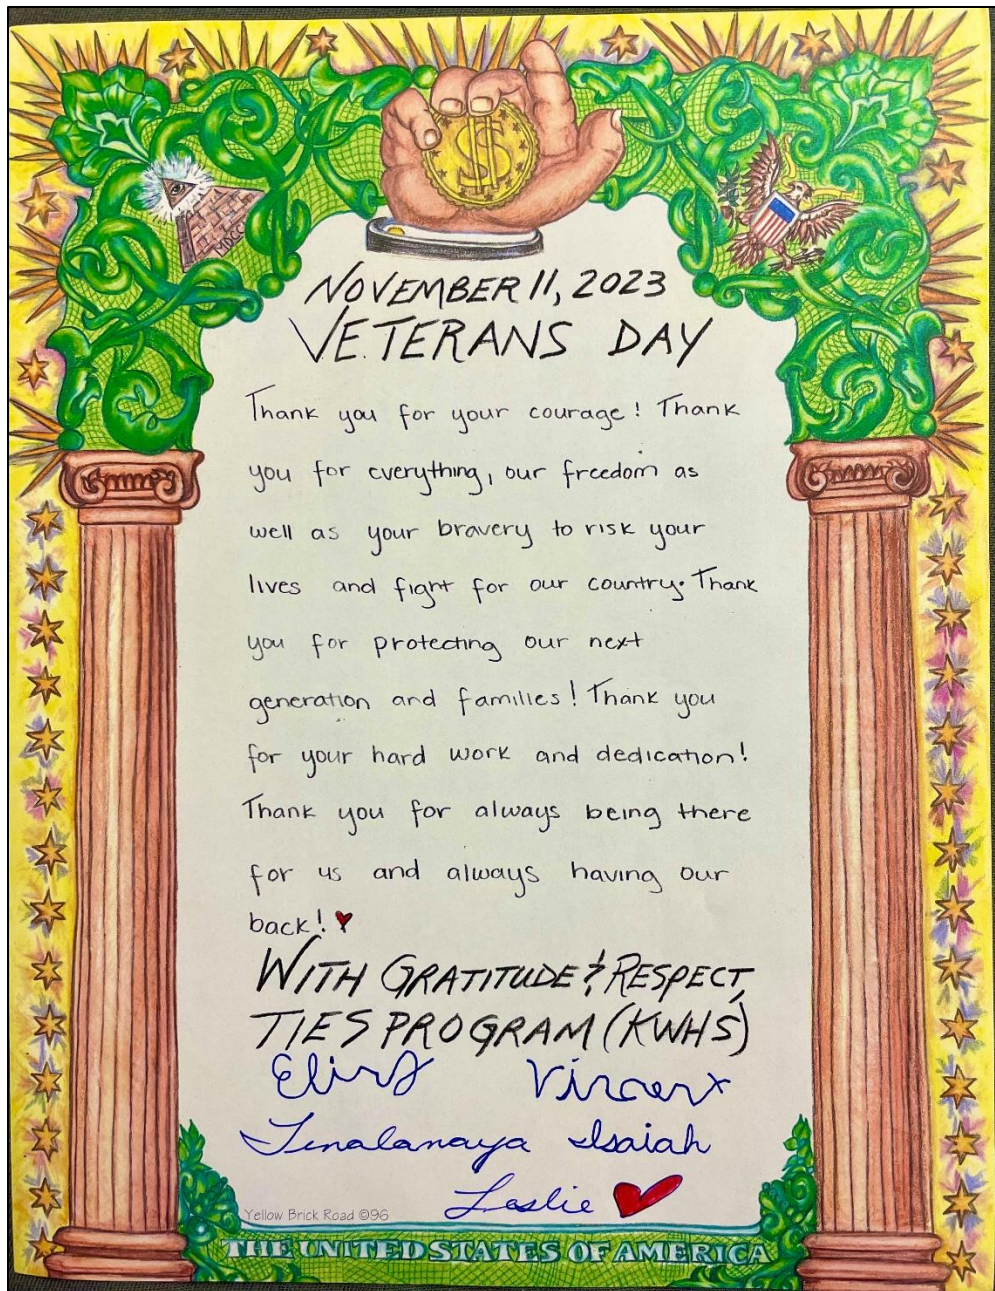 MDCC
NOVEMBER 11, 2023
VETERANS DAY
Thank you for your courage! Thank
you for everything, our freedom as
well as your bravery to risk your
lives and fight for our country. Thank
you for protecting our next
generation and families! Thank you
for your hard work and dedication!
Thank you for always being there
for us and always having our
back!
WITH GRATITUDE & RESPECT,
TIES PROGRAM (KWHS)
Vincent
Isaiah
Leslie
Yellow Brick Road ©96
THE UNITED STATES OF AMERICA